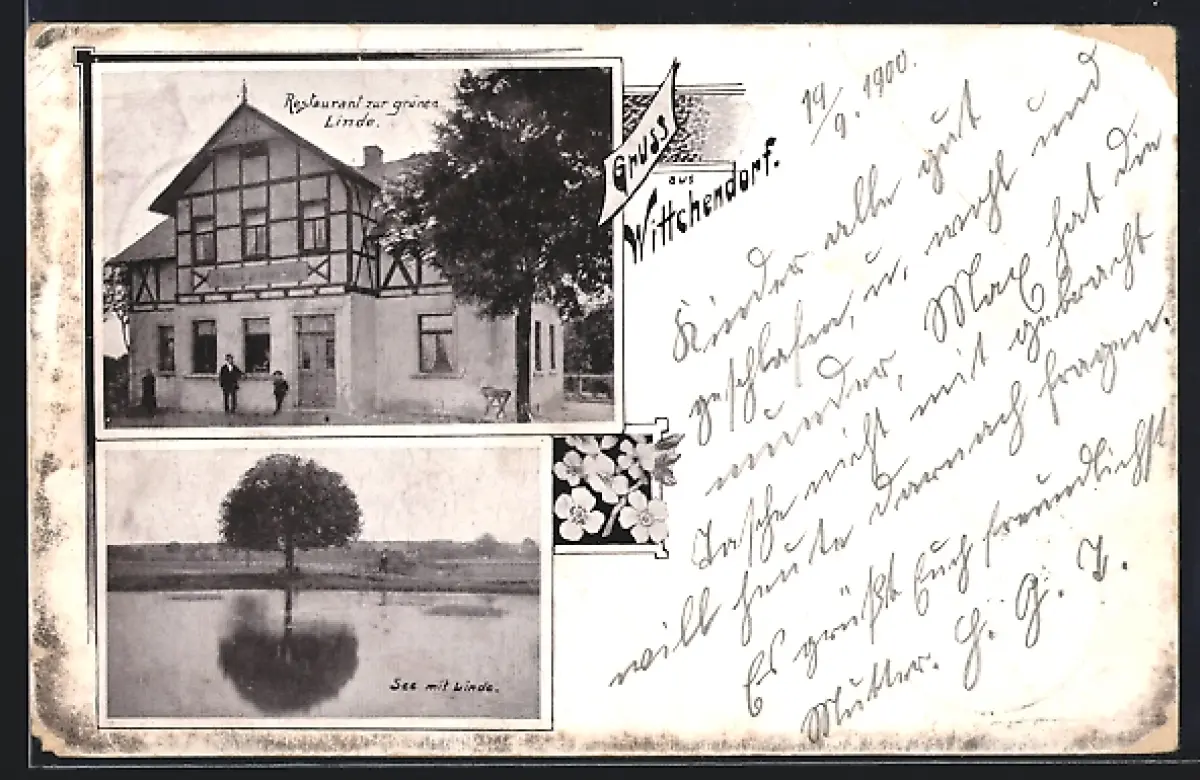 Restaurant zur grünen
Linde.
Gruss
aus
Wittchendorf.
See mit Linde.
19/9. 1900.
Kinder alle gut
geschlafen, u. wohl und
munter, Max hat die
Tasche nicht mit gebracht
will heute darnach fragen.
Es grüßt Euch freundlichst
Mutter. H. G. T.